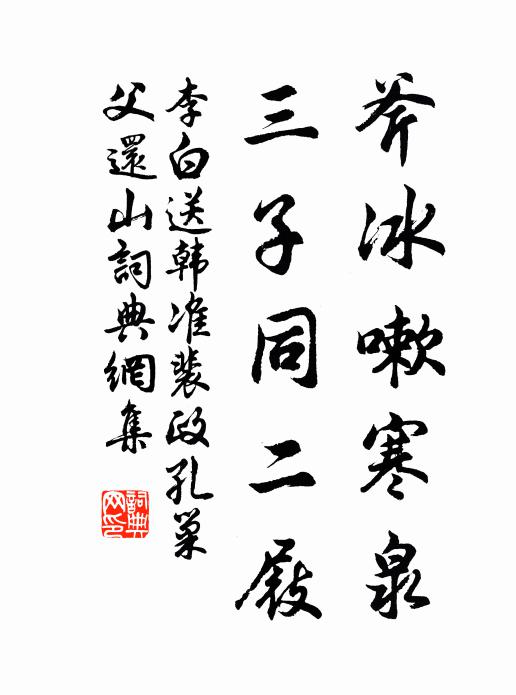 斧冰嗽寒泉
三子同二屐
李白送韩准裴政孔巢
父還山詞典網集
詞典網印